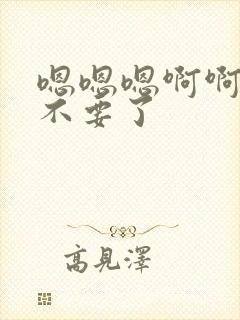 嗯嗯嗯啊啊
不要了
高見澤